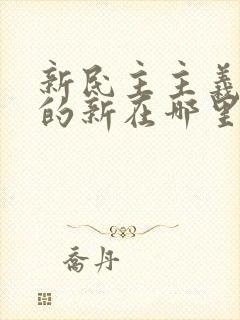 新民主主義
的新在哪里
喬丹